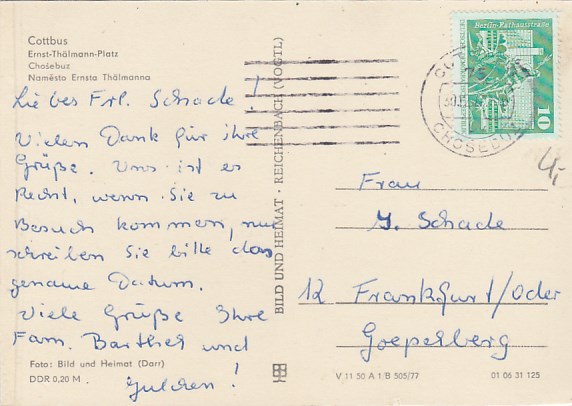 Cottbus
Ernst-Thälmann-Platz
Chośebuz
Naměsto Ernsta Thälmanna
Liebes Frl. Schade!
Vielen Dank für ihre
Grüße. Uns ist es
Recht, wenn Sie zu
Besuch kommen, nur
schreiben Sie bitte das
genaue Datum.
Viele Grüße Ihre
Fam. Barthel und
Julchen!
Foto: Bild und Heimat (Darr)
DDR 0,20 M
BILD UND HEIMAT · REICHENBACH (VOGTL)
Berlin-Rathausstraße
10
COTTBUS
CHOSEBUZ
Frau
J. Schade
12 Frankfurt/Oder
Goepelberg
V 11 50 A 1/B 505/77
01 06 31 125